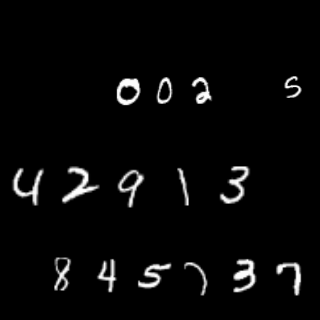 0 0 2 5
4 2 9 1 3
8 4 5 7 3 7